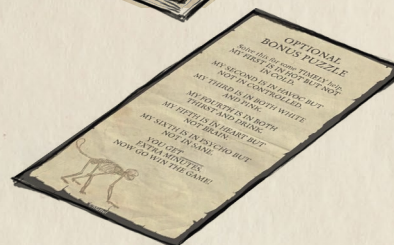 OPTIONAL
BONUS PUZZLE
Solve this for some TIMELY help.
MY FIRST IS IN HOT BUT NOT
IN COLD.
MY SECOND IS IN HAVOC BUT
NOT IN CONTROLLED.
MY THIRD IS IN BOTH WHITE
AND PINK.
MY FOURTH IS IN BOTH
THIRST AND DRINK.
MY FIFTH IS IN HEART BUT
NOT BRAIN.
MY SIXTH IS IN PSYCHO BUT
NOT IN SANE.
YOU GET
EXTRA MINUTES.
NOW GO WIN THE GAME!